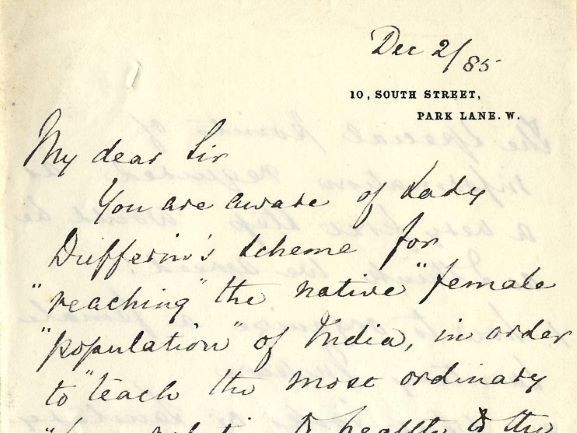 Dec 2/85
10, SOUTH STREET,
PARK LANE. W.
My dear Sir
You are aware of Lady
Dufferin's scheme for
"reaching" the native "female
"population" of India, in order
to "teach the most ordinary
to health to the